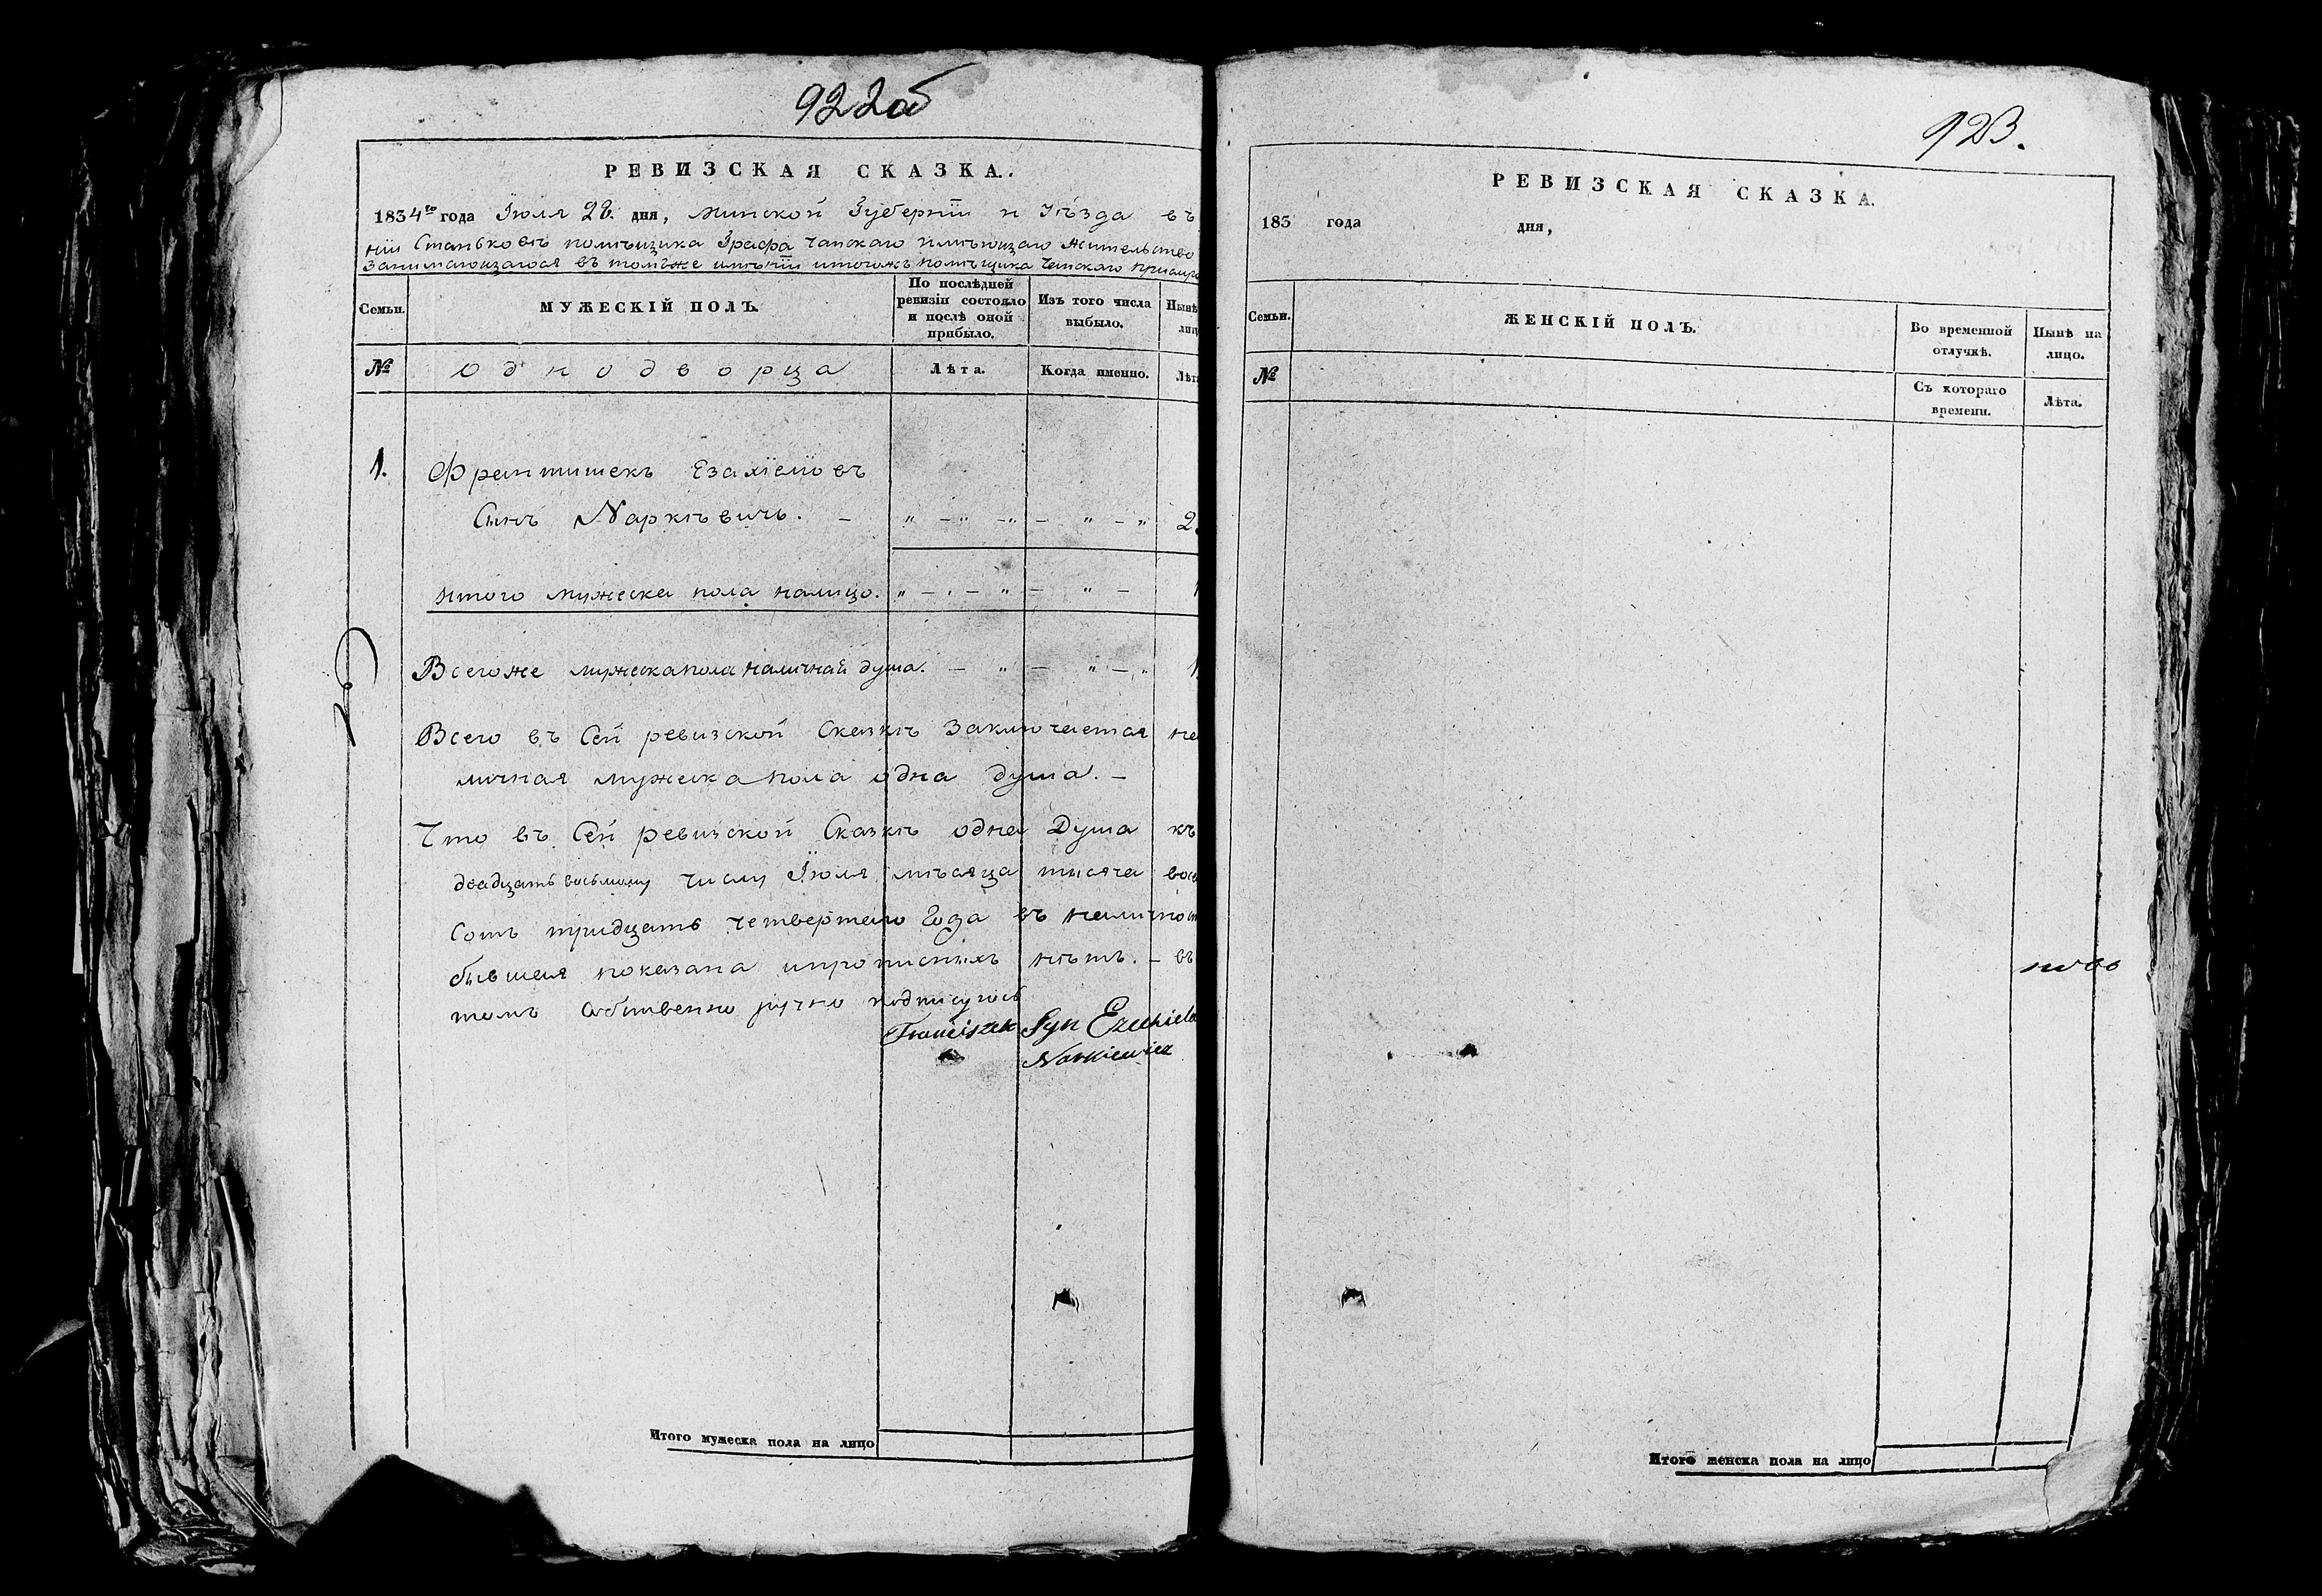 922об
РЕВИЗСКАЯ СКАЗКА.
1834го года Июля 28. дня, Минской Губернїи и Уѣзда въ
нїи Станьковѣ помѣщика Графа Чапскаго имѣющаго жительство
занимающагося въ томъже имѣнїи итогожъ помѣщика Чапскаго
Семьи.
МУЖЕСКІЙ ПОЛЪ.
По послѣдней ревизіи состояло и послѣ оной прибыло.
Изъ того числа выбыло.
Нынѣ
лиц
№
Однодворца
Лѣта.
Когда именно.
Лѣт
1. Франтишекъ Езахїелïовъ
Сынъ Наркѣвичь. - 2
итого мужеска пола налицо. 1
Всегоже мужескапола наличнай душа. 1
Всего въ Сей ревизской Сказкѣ Заключается на
личная мужеска пола одна душа. -
Что въ Сей ревизской Сказкѣ одна Душа къ
двадцать восьмому числу Июля мѣсяца тысяча вос
Сотъ тридцать четвертаго Года въ наличнос
бывшая показана ипрописныхъ нѣтъ. - въ
томъ Собственно ручно подписуюсь
Franciszek Syn Ezechiela
Narkiewicz
Итого мужеска пола на лицо
923.
РЕВИЗСКАЯ СКАЗКА.
183 года дня,
Семьи.
ЖЕНСКІЙ ПОЛЪ.
Во временной отлучкѣ.
Нынѣ на лицо.
№
Съ котораго времени.
Лѣта.
Итого женска пола на лицо